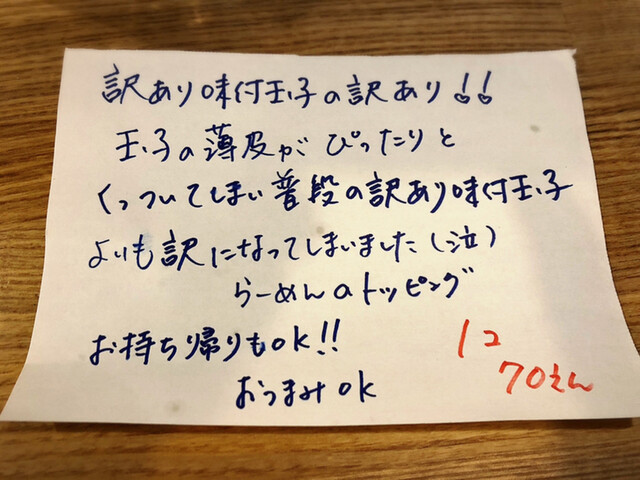 訳あり味付玉子の訳あり!!
玉子の薄皮がぴったりと
くっついてしまい普段の訳あり味付玉子
よりも訳になってしまいました(泣)
らーめんのトッピング
お持ち帰りもok!!
おつまみok
1コ
70えん